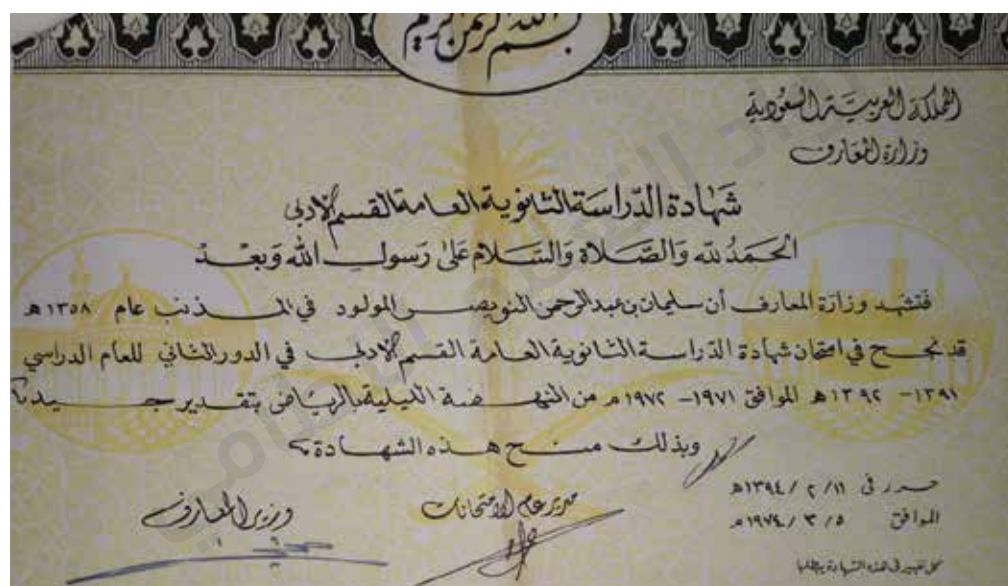 بسم الله الرحمن الرحيم
المملكة العربية السعودية
وزارة المعارف
شهادة الدراسة الثانوية العامة القسم الأدبي
الحمد لله والصلاة والسلام على رسول الله وبعد
فتشهد وزارة المعارف أن سليمان بن عبد الرحمن النويصر المولود في المذنب عام ١٣٥٨ هـ
قد نجح في امتحان شهادة الدراسة الثانوية العامة القسم الأدبي في الدور الثاني للعام الدراسي
١٣٩١ - ١٣٩٢ هـ الموافق ١٩٧١ - ١٩٧٢ م من النهضة الليلية بالرياض بتقدير جيد
وبذلك منح هذه الشهادة
حرر في ١١ / ٢ / ١٣٩٤ هـ
الموافق ٥ / ٣ / ١٩٧٤ م
مدير عام الامتحانات
وزير المعارف
كل تغيير في هذه الشهادة يبطلها